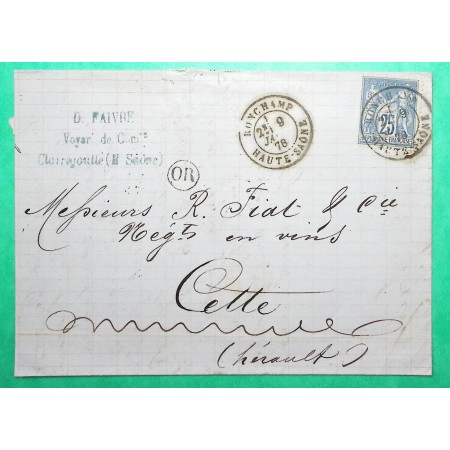 D. FAIVRE
Voyar de Com
Clairegoutte (H Saône)
OR
RONCHAMP
2E
9
JA
78
HAUTE-SAÔNE
25
9
Messieurs R. Fiat & Cie
Négts en vins
Cette
(hérault)